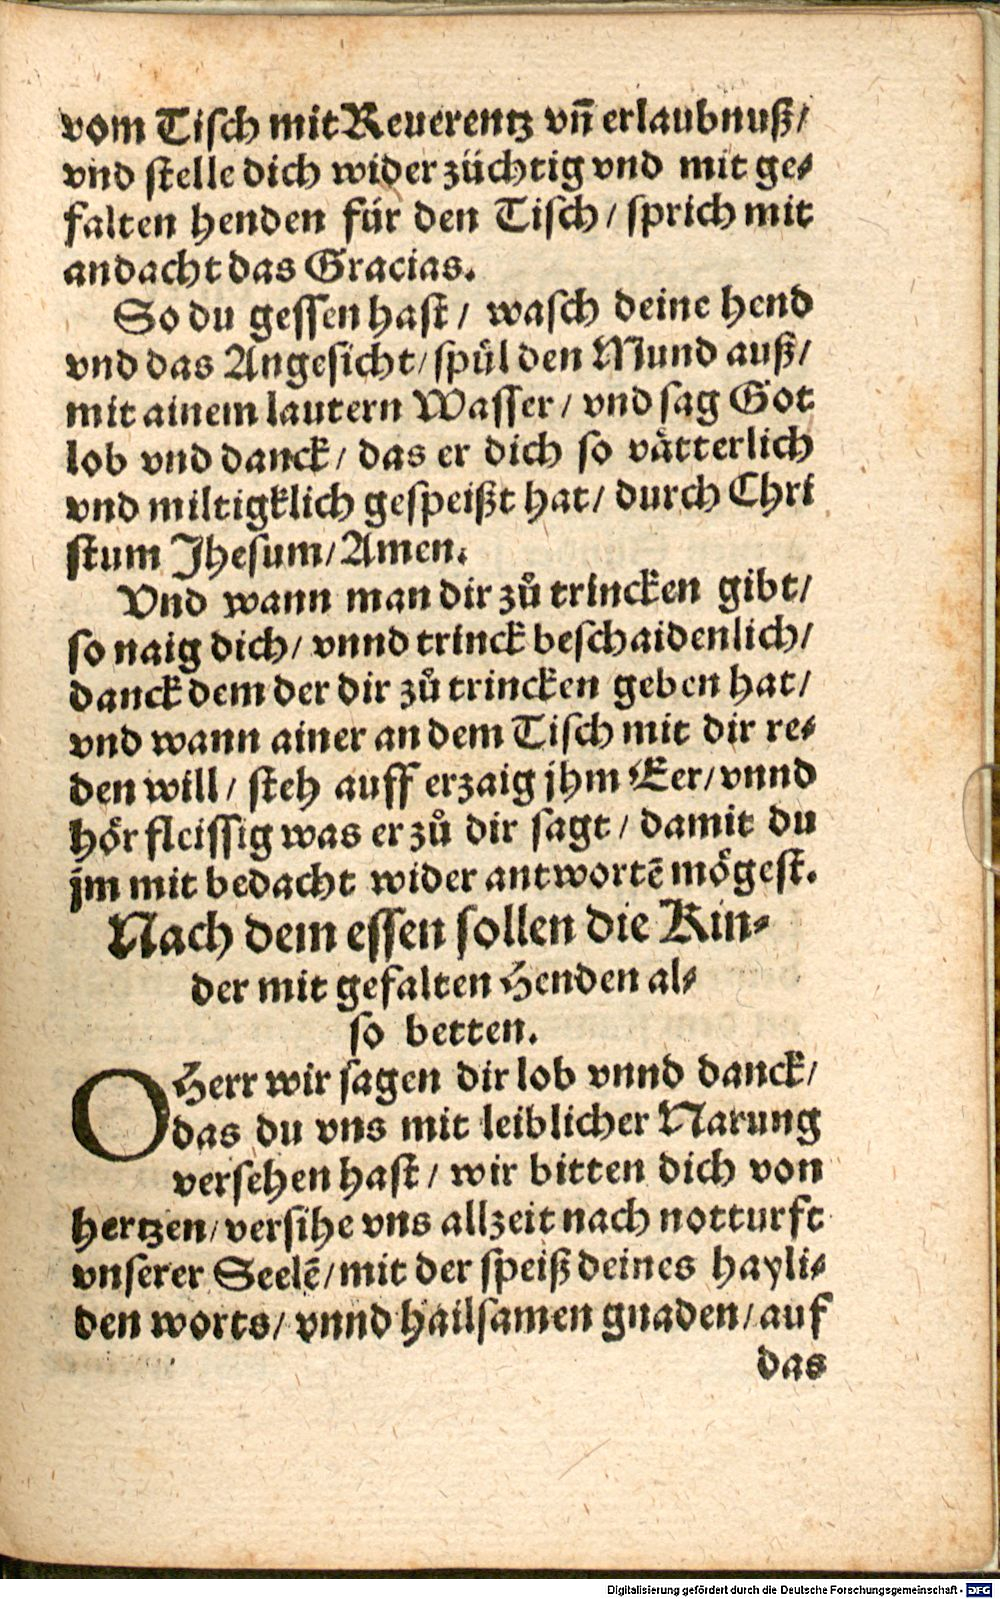 vom Tisch mit Reuerentz vn̄ erlaubnuß/
vnd stelle dich wider züchtig vnd mit ge-
falten henden für den Tisch/ sprich mit
andacht das Gracias.
So du gessen hast/ wasch deine hend
vnd das Angesicht/ spül den Mund auß/
mit ainem lautern Wasser/ vnd sag Got
lob vnd danck/ das er dich so vätterlich
vnd miltigklich gespeißt hat/ durch Chri
stum Jhesum/ Amen.
Vnd wann man dir zů trincken gibt/
so naig dich/ vnnd trinck beschaidenlich/
danck dem der dir zů trincken geben hat/
vnd wann ainer an dem Tisch mit dir re-
den will/ steh auff erzaig jhm Eer/ vnnd
hör fleissig was er zů dir sagt/ damit du
jm mit bedacht wider antwortē mögest.
Nach dem essen sollen die Kin-
der mit gefalten Henden al-
so betten.
O Herr wir sagen dir lob vnnd danck/
das du vns mit leiblicher Narung
versehen hast/ wir bitten dich von
hertzen/ versihe vns allzeit nach notturft
vnserer Seelē/ mit der speiß deines hayli-
den worts/ vnnd hailsamen gnaden/ auf
das
Digitalisierung gefördert durch die Deutsche Forschungsgemeinschaft - DFG